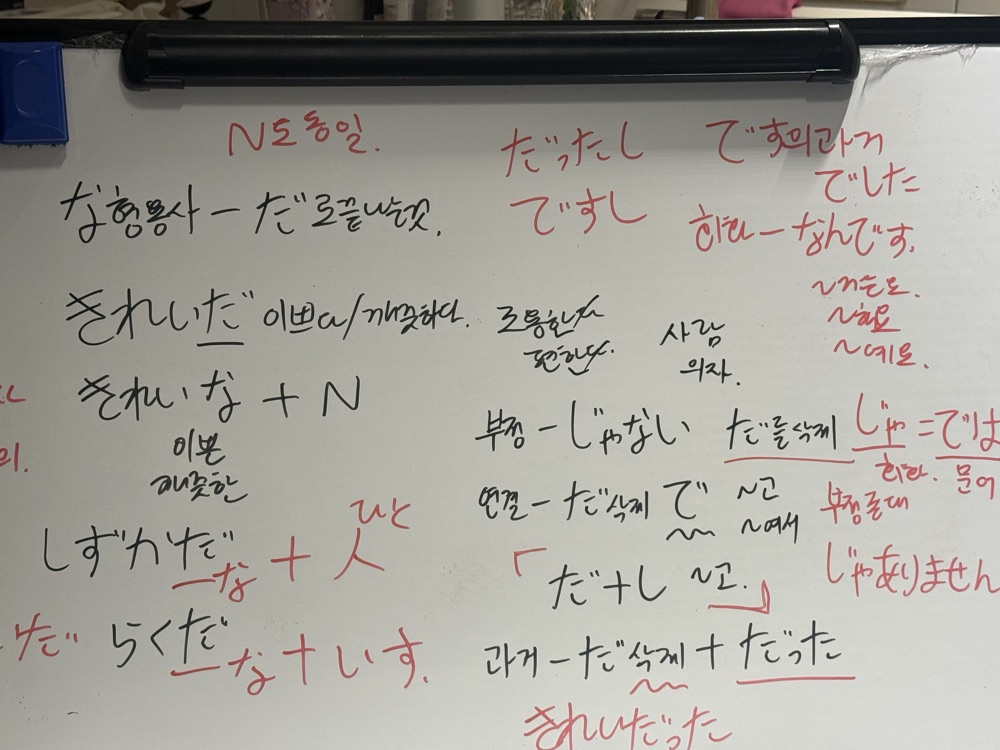 N도 동일.
な형용사 — だ로 끝나는것.
きれいだ 이쁘다/깨끗하다.
きれいな + N
이쁜
깨끗한
ひと
しずかだ
—な + 人
らくだ
—な + いす.
だったし
ですし
です의 과거
でした
회화 — なんです.
~거든요.
~해요
~예요.
편한
사람
의자.
부정 — じゃない だ를 삭제 じゃ = では
회화. 문어
연결 — だ 삭제 で ~고
~여서
부정존대
「だ+し ~고.」
じゃありません
과거 — だ 삭제 + だった
きれいだった